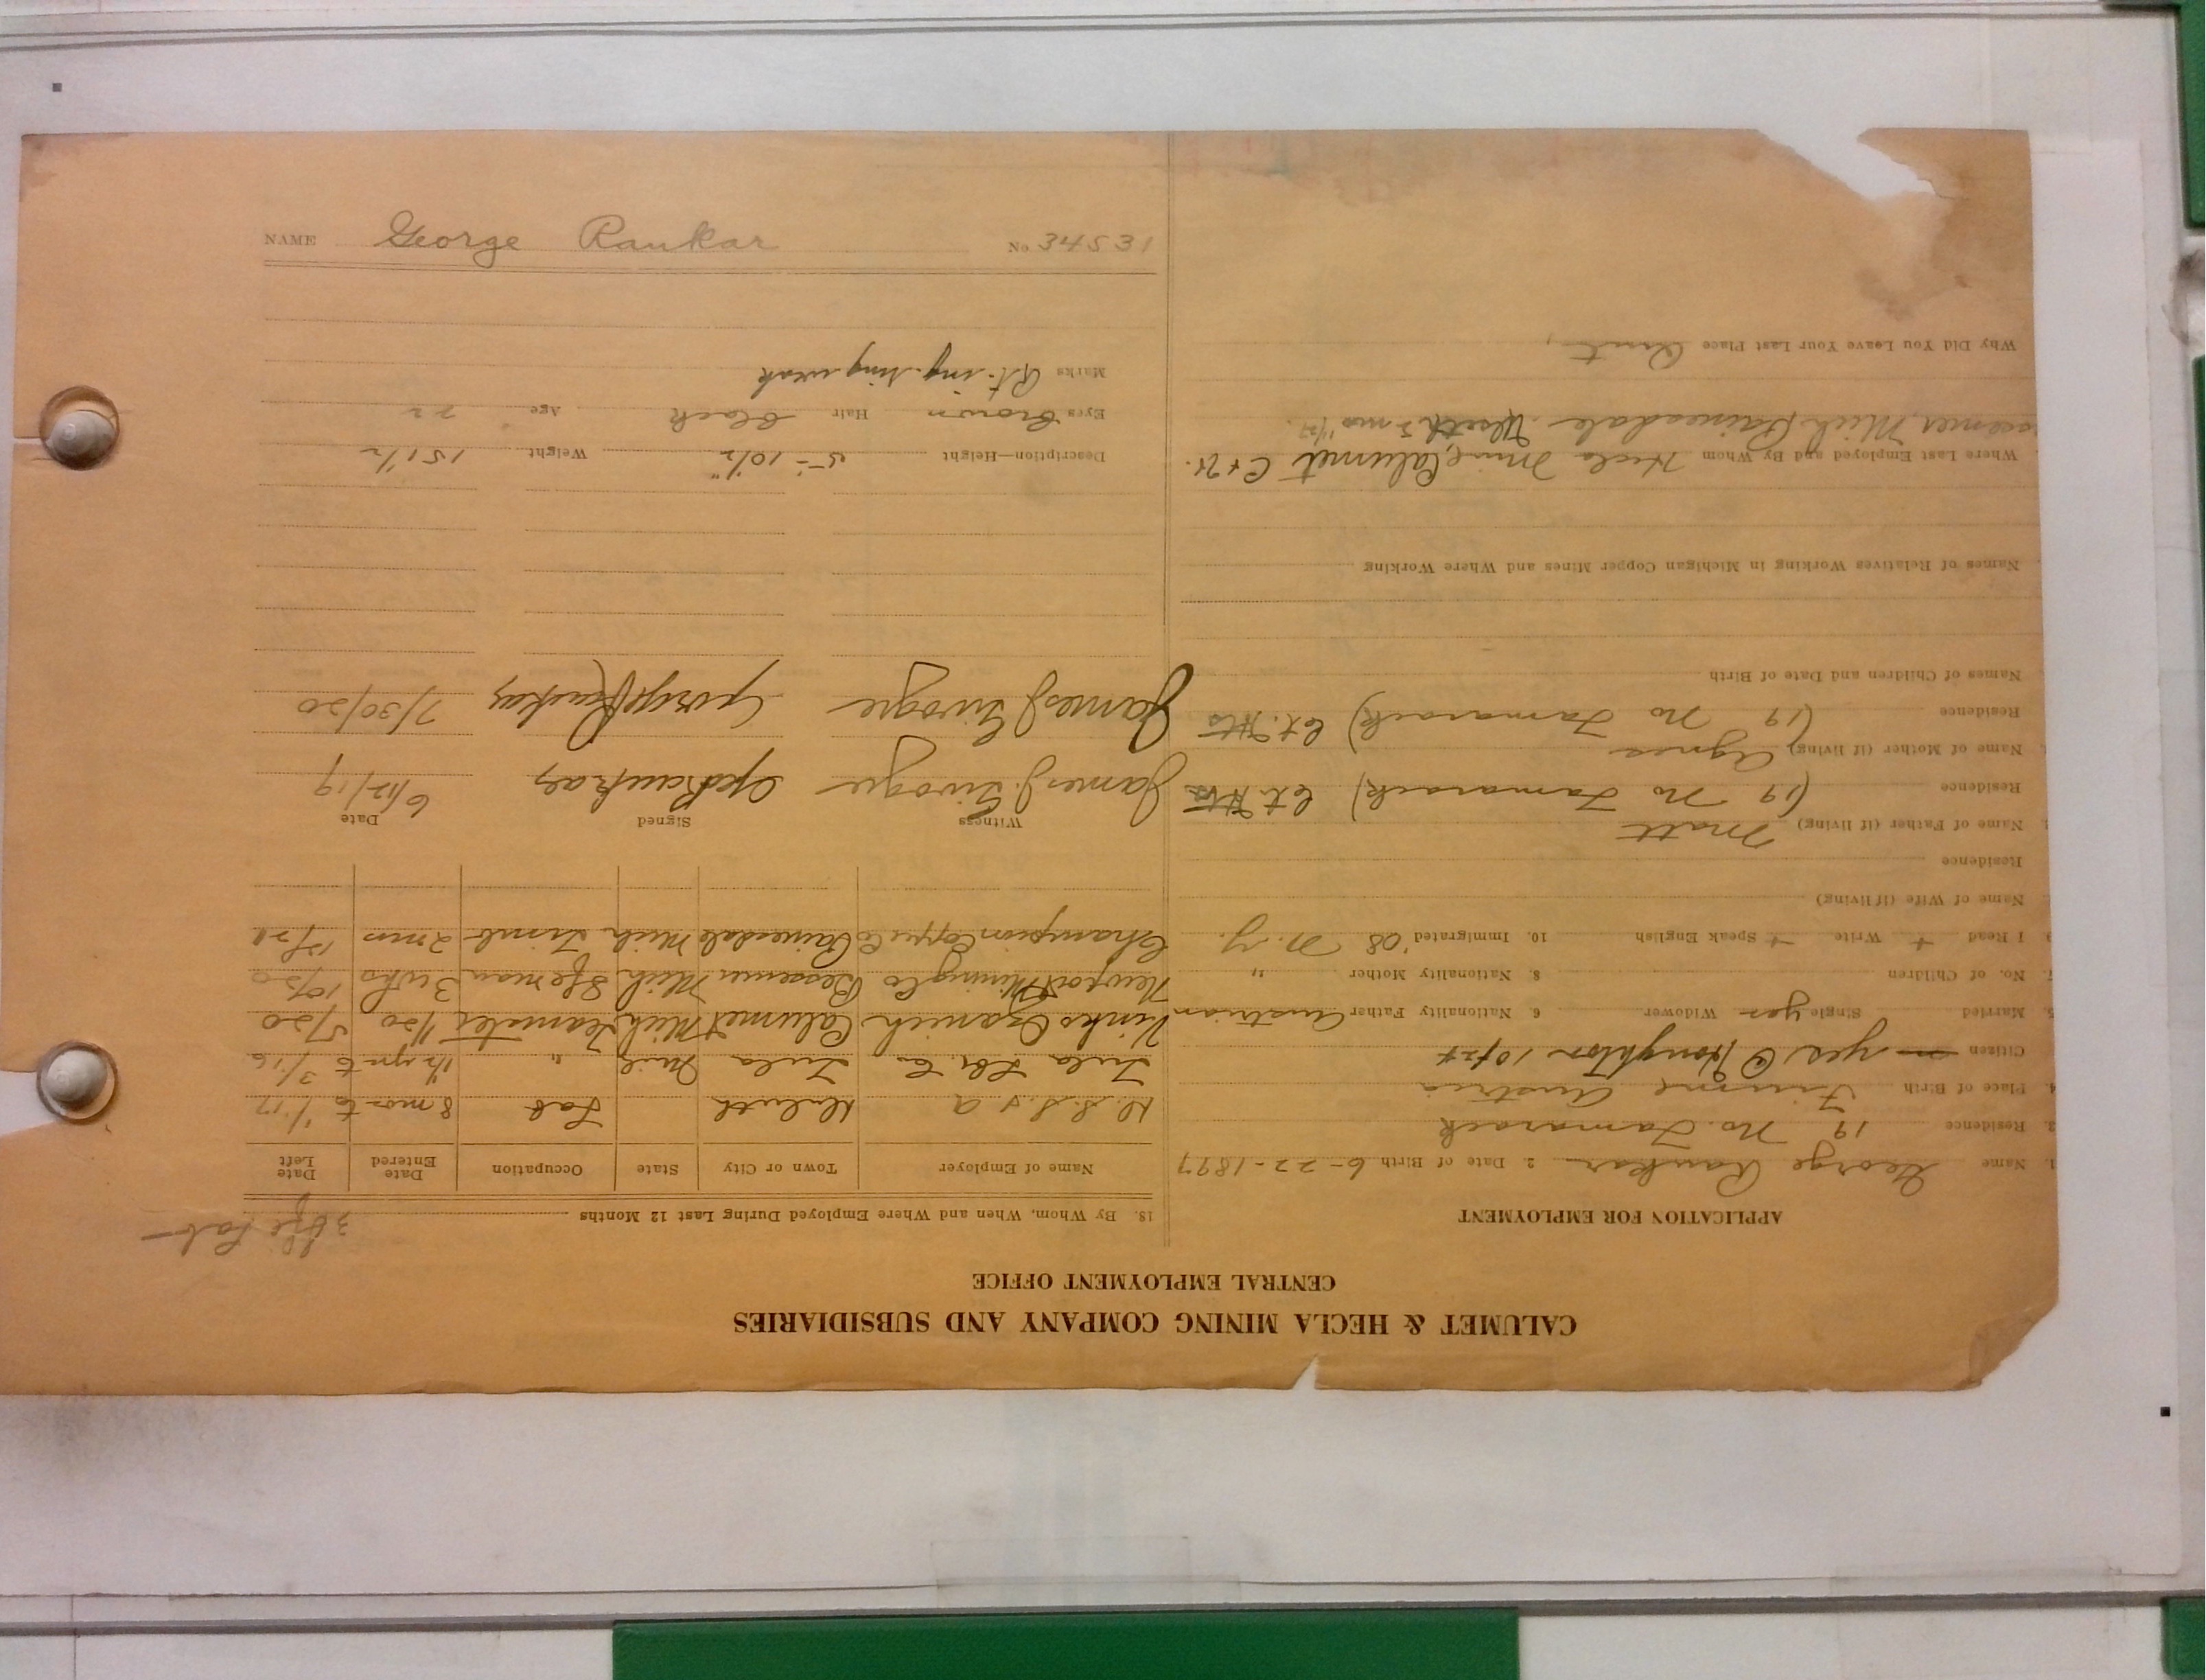 CALUMET & HECLA MINING COMPANY AND SUBSIDIARIES
CENTRAL EMPLOYMENT OFFICE
APPLICATION FOR EMPLOYMENT
1. Name George Raukar 2. Date of Birth 6-22-1897
3. Residence 19 No. Tamarack
4. Place of Birth Fiume Austria
Citizen yes Houghton
5. Married Single yes Widower 6. Nationality Father Austrian
7. No. of Children 8. Nationality Mother "
9. I Read + Write + Speak English 10. Immigrated '08 N.Y.
Name of Wife (if living)
Residence
Name of Father (if living) Matt
Residence (19 No Tamarack)
Name of Mother (if living) Agnes
Residence (19 No Tamarack)
Names of Children and Date of Birth
Names of Relatives Working in Michigan Copper Mines and Where Working
Where Last Employed and By Whom Hecla Mine, Calumet C + H.
Mich Painesdale
Why Did You Leave Your Last Place Quit
3 Lab
18. By Whom, When and Where Employed During Last 12 Months
Name of Employer Town or City State Occupation Date Entered Date Left
U.S.S. & Q Duluth Lab 8 mos to 1/17
Tula Lbr. Co Tula Mich " 1½ yrs to 3/16
Vinko Calumet Mich Teamster 1/20 5/20
Newport Mining Co Bessemer Mich 3 wks 10/20
Champion Copper Co Painesdale Mich Timb 2 mos
Witness Signed Date
James J. Geo Raukar 6/12/19
James J. George Raukar 7/30/20
Description—Height 5'-10½" Weight 151½
Eyes Brown Hair Black Age 22
Marks Rt. ing. ring weak
NAME George Raukar No 34531